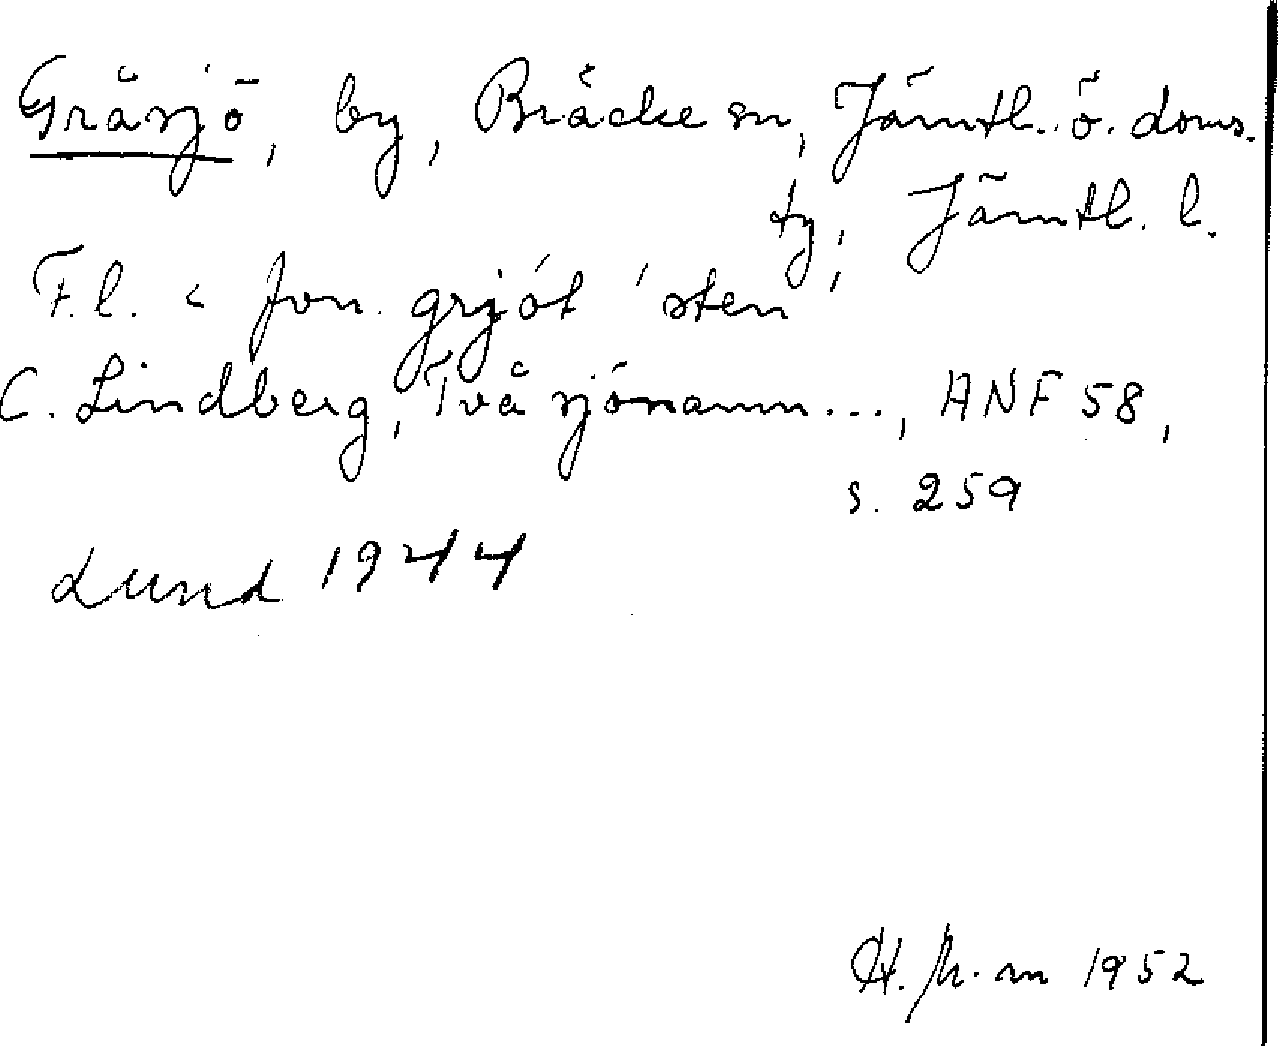 Gråsjö, by, Bräcke sn, Jämtl. ö. doms.
ty; Jämtl. l.
F.l. < fvn. grjót 'sten';
C. Lindberg, Två sjönamn..., ANF 58,
s. 259
Lund 1944
1952